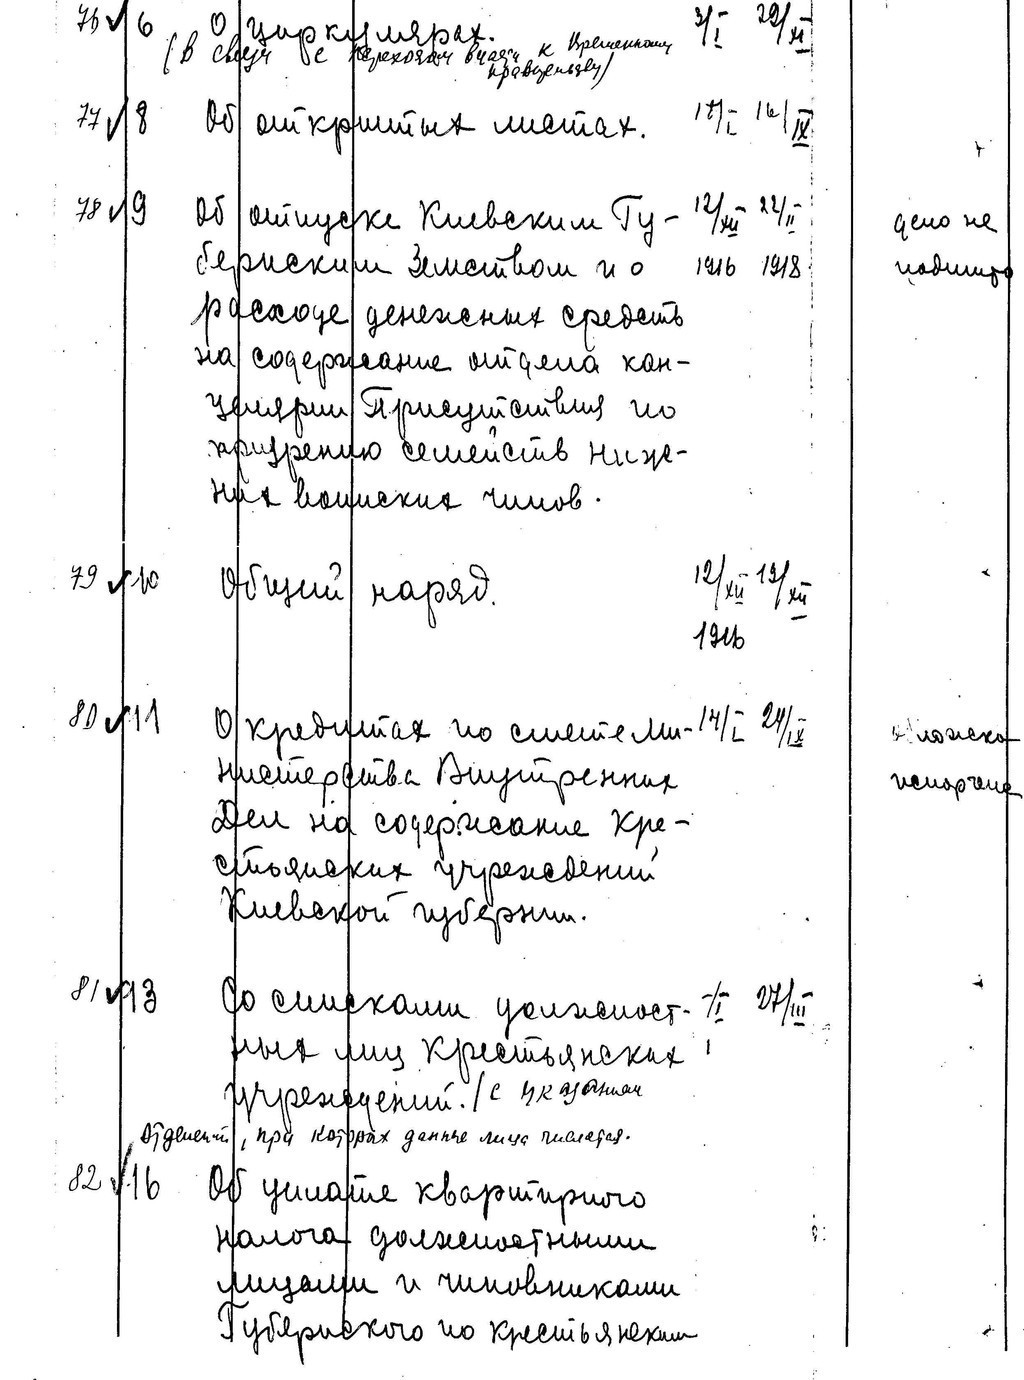 76 6 О циркулярах. 3/I 29/XI
(В связи с переходом власти к Временному
правительству)
77 8 Об открытых листах. 17/I 16/IX
78 9 Об отпуске Киевским Гу- 12/XII 22/II дело не
бернским Земством и о 1916 1918 подшито
расходе денежных средств
на содержание отдела кан-
целярии Присутствия по
призрению семейств ниж-
них воинских чинов.
79 10 Общий наряд. 12/XII 19/XII
1916
80 11 О кредитах по смете Ми- 14/I 24/IX
нистерства Внутренних испорчена
Дел на содержание кре-
стьянских учреждений
Киевской губернии.
81 13 Со списками должност- -/I 27/III
ных лиц крестьянских
учреждений. /с указанием
отделений, при которых данные лица числятся.
82 16 Об уплате квартирного
налога должностными
лицами и чиновниками
Губернского по крестьянским